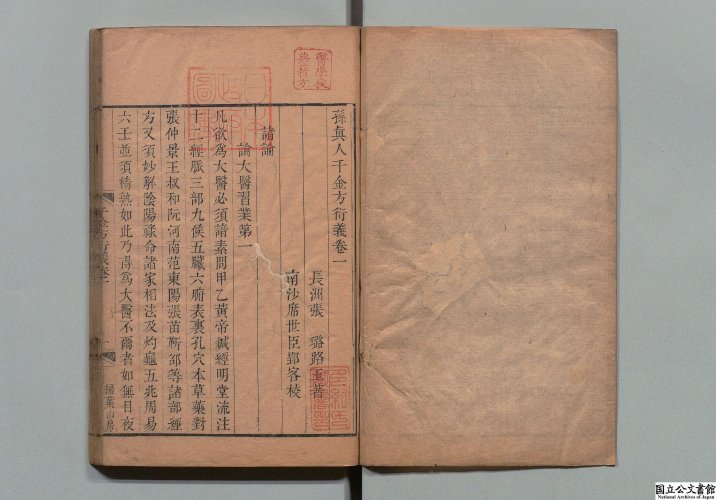 孫眞人千金方衍義卷一
長洲張　璐路玉著
南沙席世臣郢客校
諸論
論大醫習業第一
凡欲爲大醫必須諳素問甲乙黃帝鍼經明堂流注
十二經脈三部九候五臟六腑表裏孔穴本草藥對
張仲景王叔和阮河南范東陽張苗靳邵等諸部經
方又須妙解陰陽祿命諸家相法及灼龜五兆周易
六壬並須精熟如此乃得爲大醫不爾者如無目夜
千金方衍義卷一
一
掃葉山房
醫學校
典藉方
日本
政府
圖書
国立公文書館
National Archives of Japan